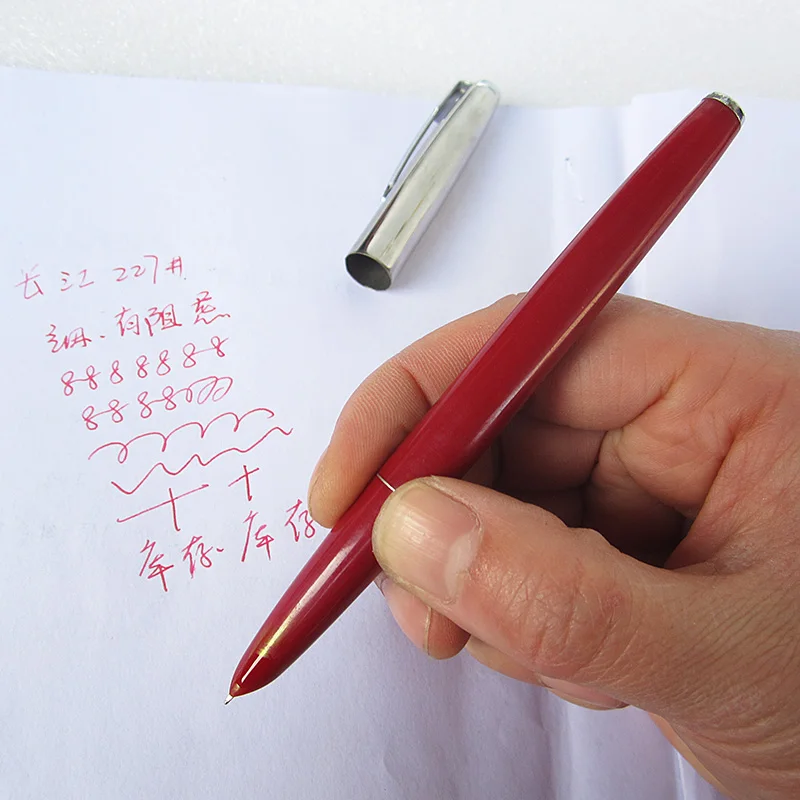 长江 227#
细、有阻感
8 8 8 8 8 8 8
8 8 8 8
十 十
库存、库存